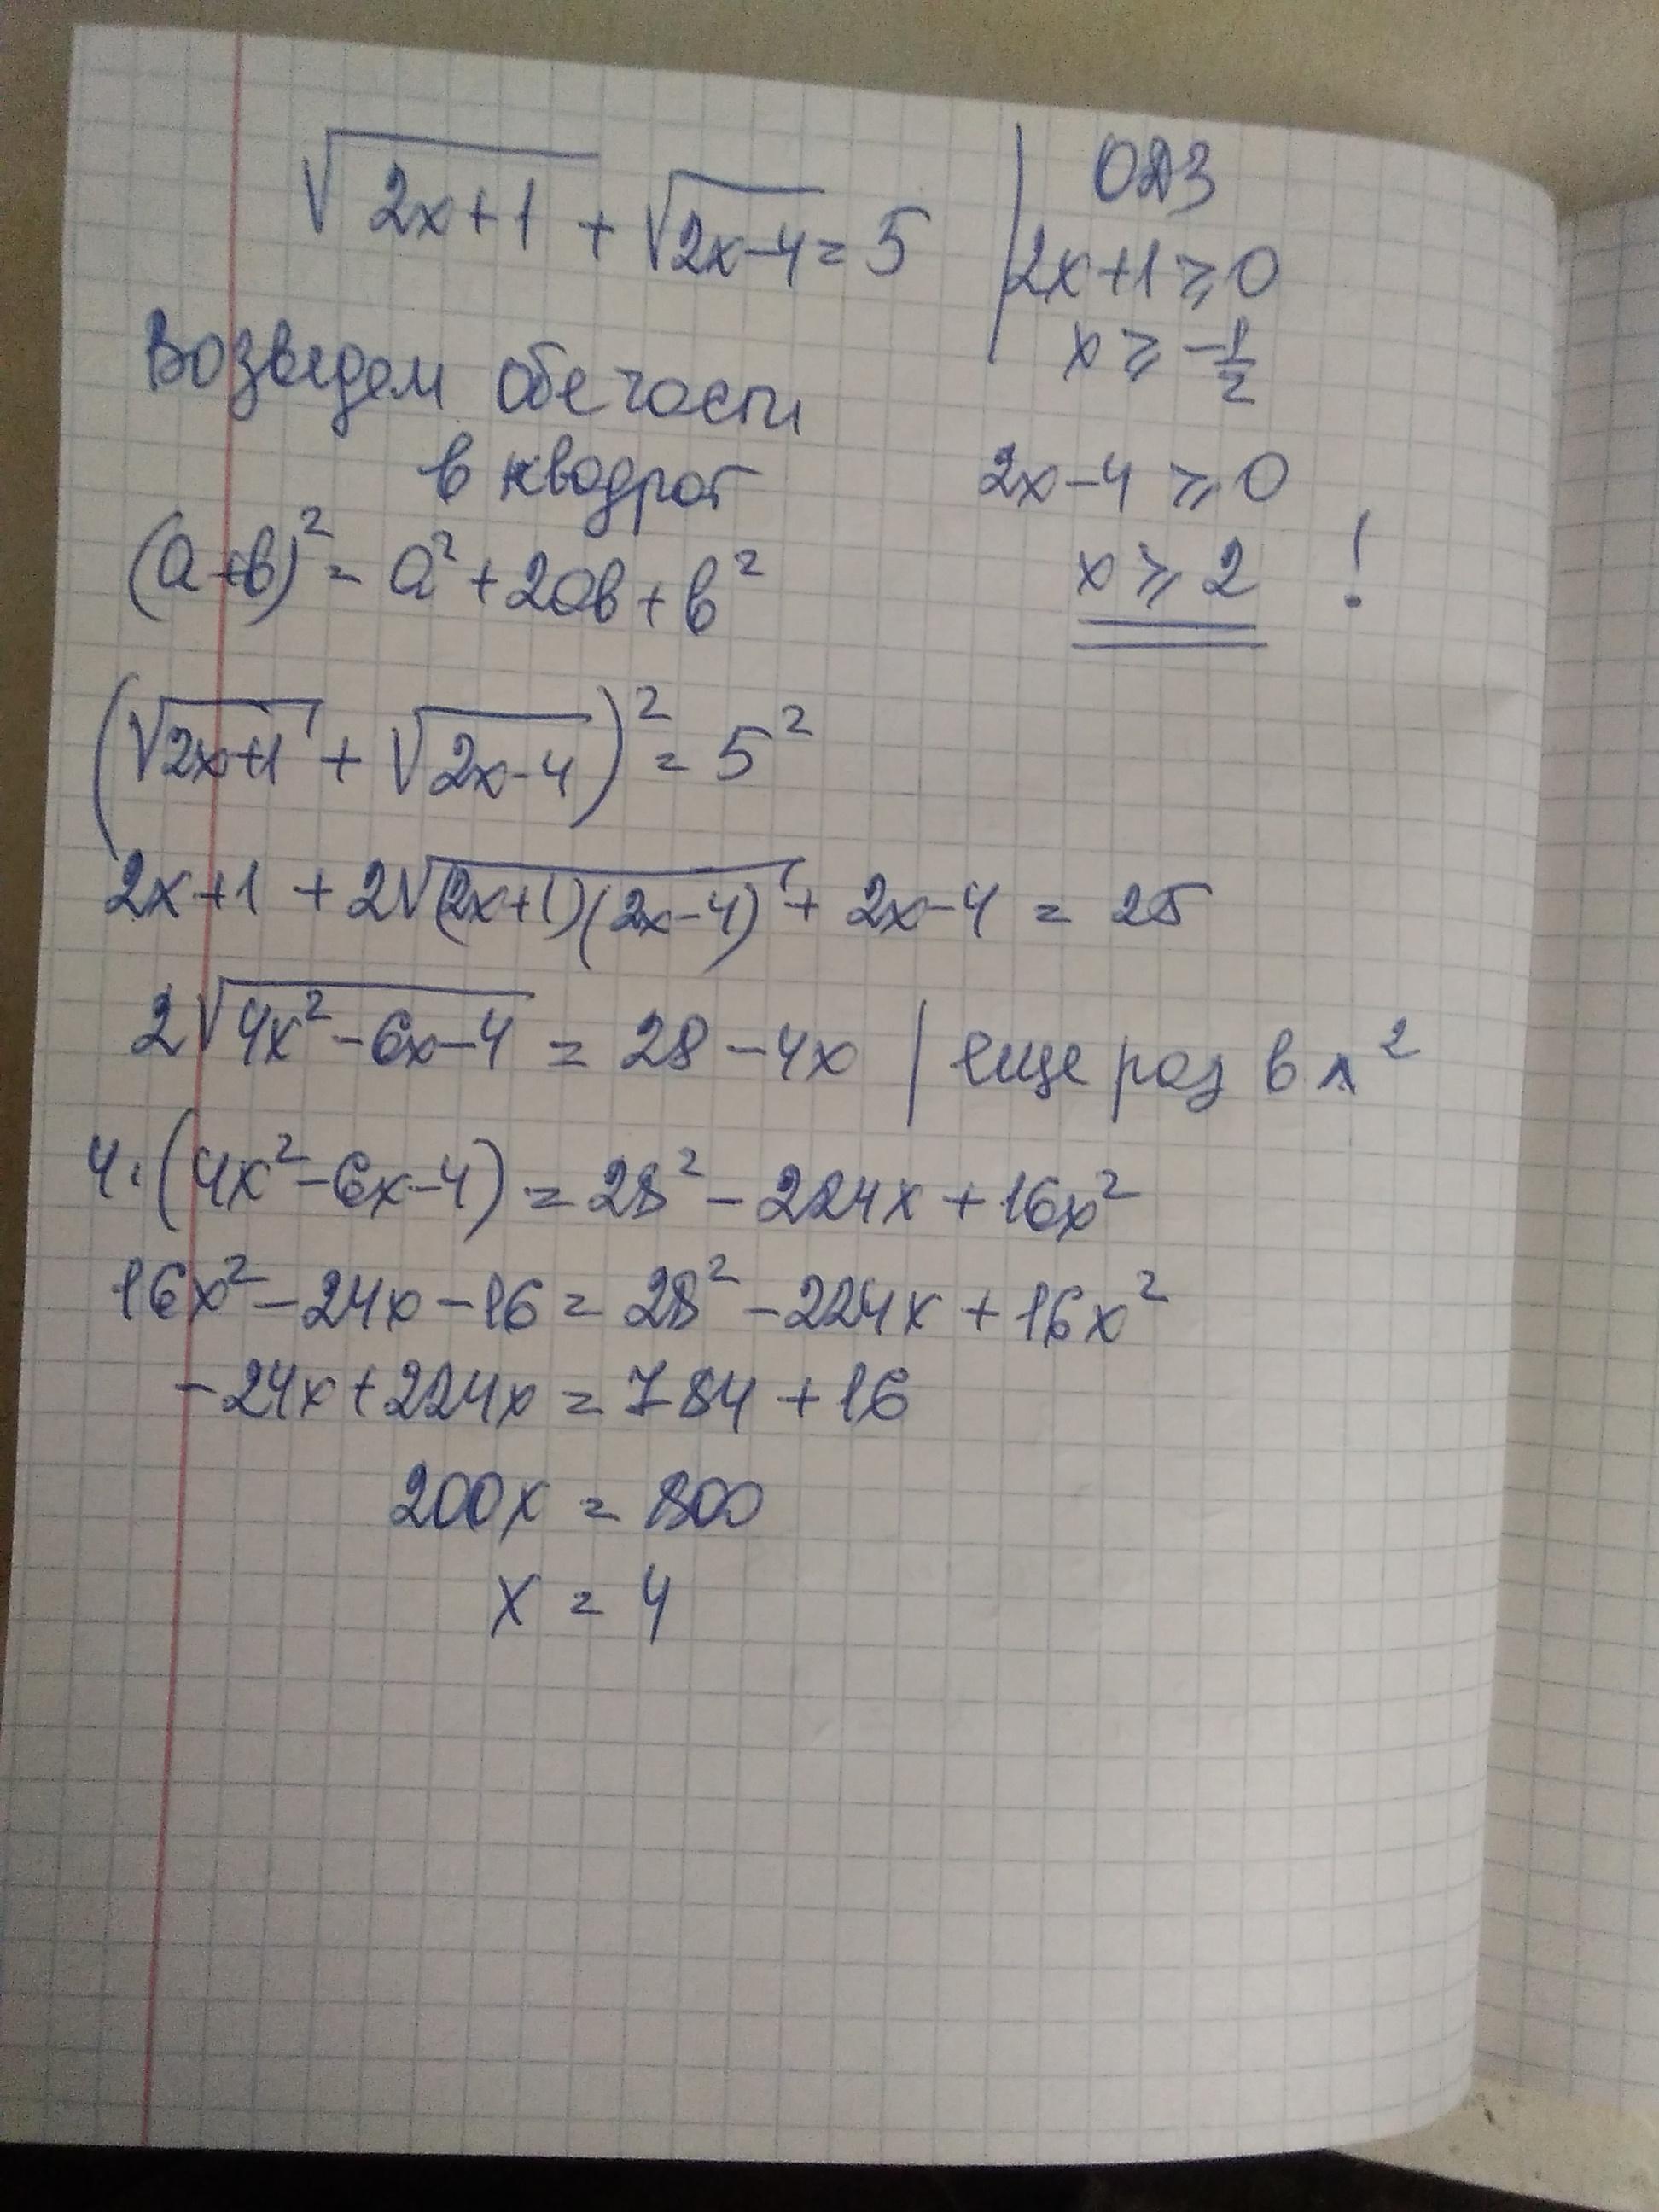 √(2x+1) + √(2x-4) = 5
ОДЗ
2x+1 ≥ 0
x ≥ -1/2
2x-4 ≥ 0
x ≥ 2 !
Возведем обе части
в квадрат
(a+b)² = a² + 2ab + b²
(√(2x+1) + √(2x-4))² = 5²
2x+1 + 2√((2x+1)(2x-4)) + 2x-4 = 25
2√(4x²-6x-4) = 28-4x | еще раз в ^2
4·(4x²-6x-4) = 28² - 224x + 16x²
16x² - 24x - 16 = 28² - 224x + 16x²
-24x + 224x = 784 + 16
200x = 800
x = 4